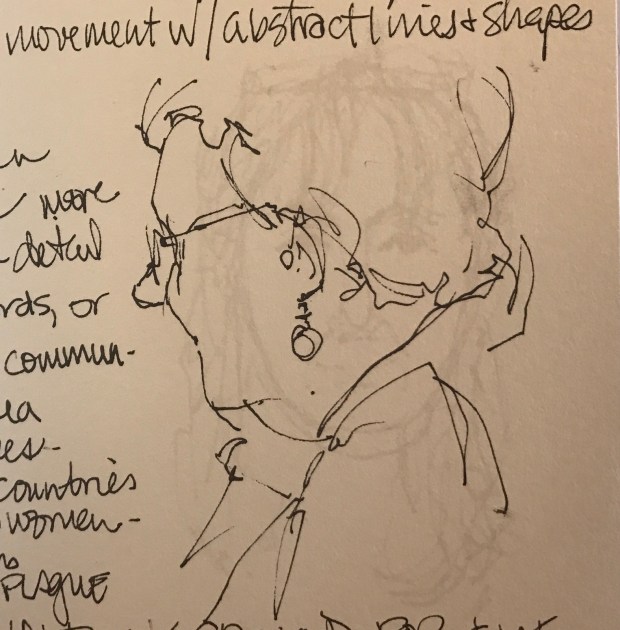 movement w/ abstract lines & shapes
more
detail
rds, or
commun-
ea
es-
countries
women-
PLAGUE